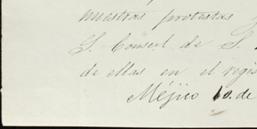 nuestras protestas
S. Consul de S.
de ellas en el regis
Méjico 10. de